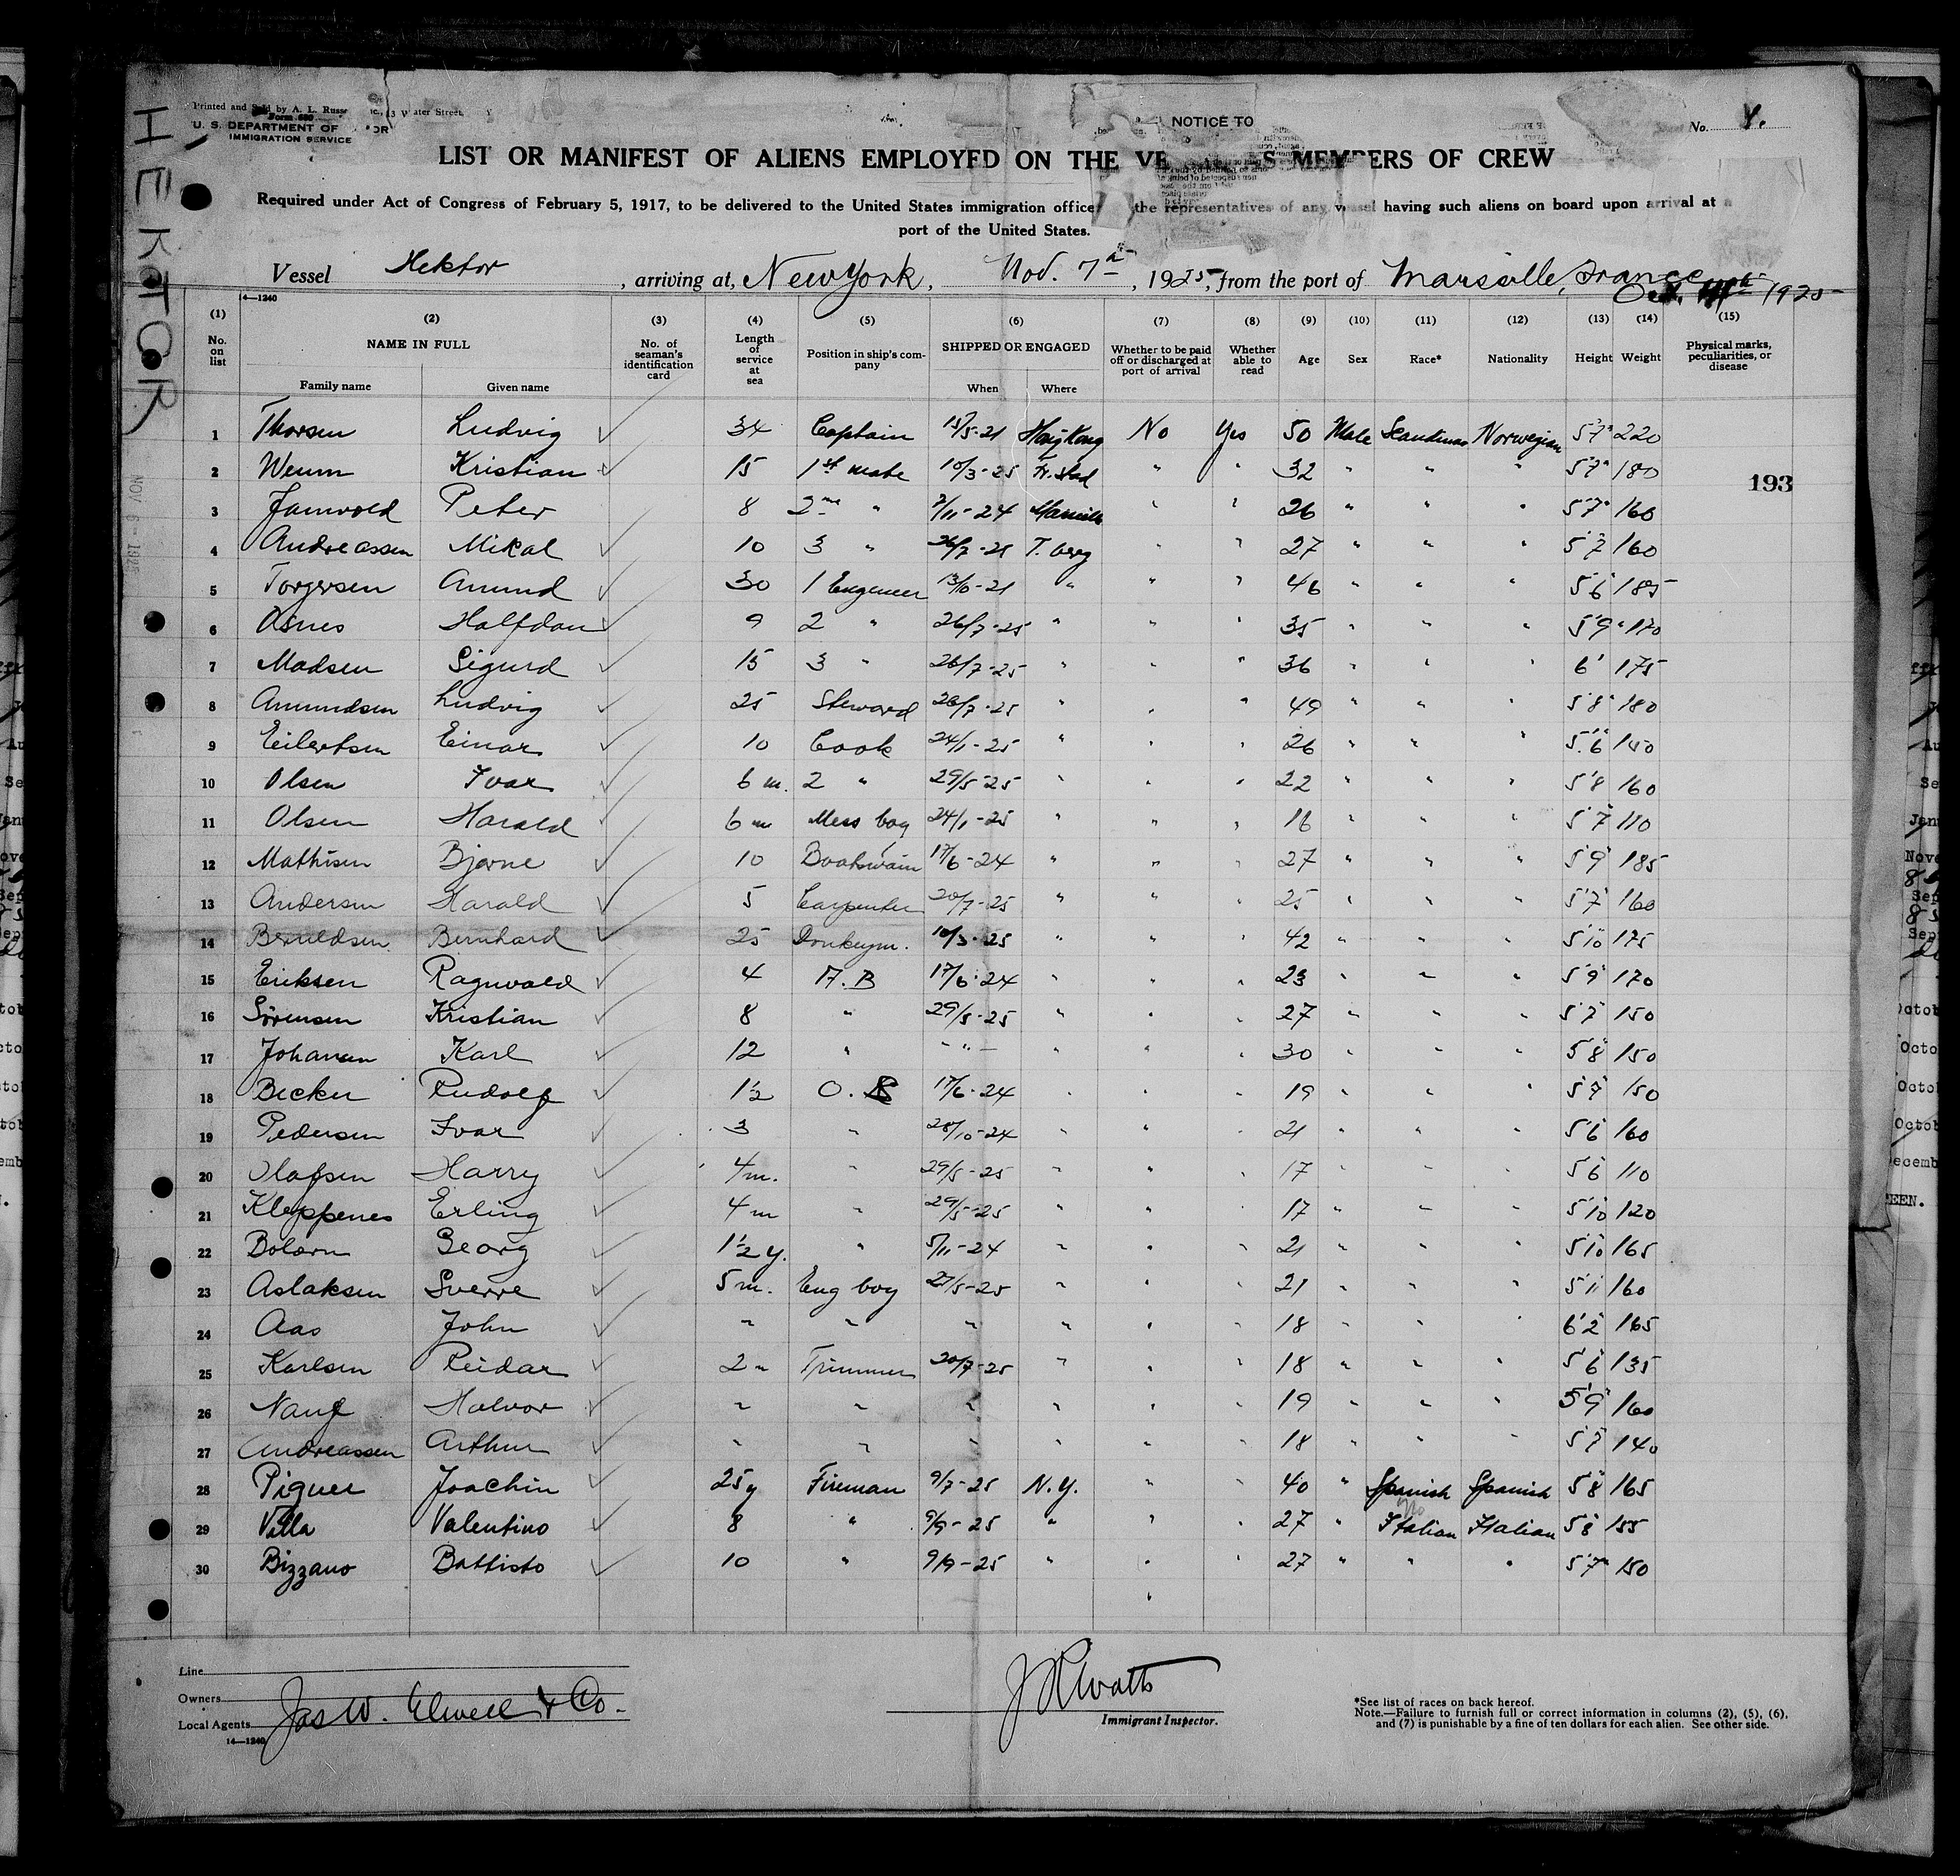 Printed and Sold by A. L. Russe
Form 680
U. S. DEPARTMENT OF
IMMIGRATION SERVICE
HEKTOR
NOTICE TO
No. 4.
LIST OR MANIFEST OF ALIENS EMPLOYED ON THE VE S MEMBERS OF CREW
Required under Act of Congress of February 5, 1917, to be delivered to the United States immigration officer the representatives of any vessel having such aliens on board upon arrival at a
port of the United States.
Vessel Hektor, arriving at, New York, Nov. 7th, 1925, from the port of Marseille, France
1925
14—1240
(1) (2) (3) (4) (5) (6) (7) (8) (9) (10) (11) (12) (13) (14) (15)
No. on list NAME IN FULL Family name Given name No. of seaman's identification card Length of service at sea Position in ship's company SHIPPED OR ENGAGED When Where Whether to be paid off or discharged at port of arrival Whether able to read Age Sex Race* Nationality Height Weight Physical marks, peculiarities, or disease
1 Thorsen Ludvig 34 Captain 13/5-21 Hong Kong No Yes 50 Male Scandinav Norwegian 5'7" 220
2 Wenm Kristian 15 1st mate 10/3-25 Fr.stad " " 32 " " " 5'7" 180
193
3 Peter 8 2nd " 7/11-24 Marseille " " 26 " " " 5'7" 160
4 Andreassen Mikal 10 3 " 26/7-25 T. berg " " 27 " " " 5'7" 160
5 Torgersen Amund 30 1 Engeneer 13/10-21 " " " 46 " " " 5'6" 185
6 Asnes Halfdan 9 2 " 26/7-25 " " " 35 " " " 5'9" 170
7 Madsen Sigurd 15 3 " 26/7-25 " " " 36 " " " 6' 175
8 Amundsen Ludvig 25 Steward 26/7-25 " " " 49 " " " 5'8" 180
9 Eilertsen Einar 10 Cook 24/1-25 " " " 26 " " " 5'6" 150
10 Olsen Ivar 6 m. 2 " 29/5-25 " " " 22 " " " 5'8 160
11 Olsen Harald 6 m Mess boy 24/1-25 " " " 16 " " " 5'7" 110
12 Mathisen Bjarne 10 Boatswain 17/6-24 " " " 27 " " " 5'9" 185
13 Andersen Harald 5 Carpenter 20/7-25 " " " 25 " " " 5'7" 160
14 Bernhard 25 Donkeym. 10/3-25 " " " 42 " " " 5'10" 175
15 Eriksen Ragnvald 4 A.B 17/6-24 " " " 23 " " " 5'9" 170
16 Sörensen Kristian 8 " 29/5-25 " " " 27 " " " 5'7" 150
17 Johansen Karl 12 " - " - " " " 30 " " " 5'8" 150
18 Becker Rudolf 1½ O. S 17/6-24 " " " 19 " " " 5'9" 150
19 Pedersen Ivar 3 " 28/10-24 " " " 21 " " " 5'6" 160
20 Olafsen Harry 4 m. " 29/5-25 " " " 17 " " " 5'6 110
21 Kleppenes Erling 4 m " 29/5-25 " " " 17 " " " 5'10" 120
22 Bolærn Georg 1½ y. " 5/11-24 " " " 21 " " " 5'10" 165
23 Aslaksen Sverre 5 m. Eng boy 27/5-25 " " " 21 " " " 5'11" 160
24 Aas John " " " " " " 18 " " " 6'2" 165
25 Karlsen Reidar 2 " Trimmer 20/7-25 " " " 18 " " " 5'6" 135
26 Halvor " " " " " " 19 " " " 5'9" 160
27 Andreassen Arthur " " " " " " 18 " " " 5'7" 140
28 Piquer Joachin 25 y Fireman 9/7-25 N.Y. " " 40 " Spanish Spanish 5'8" 165
29 Villa Valentino 8 " 9/9-25 " " " 27 " Italian Italian 5'8" 155
30 Bizzano Battisto 10 " 9/9-25 " " " 27 " " " 5'7" 150
Line
Owners
Local Agents Jas W. Elwell & Co.
14—1240
J R Watts
Immigrant Inspector.
*See list of races on back hereof.
Note.—Failure to furnish full or correct information in columns (2), (5), (6),
and (7) is punishable by a fine of ten dollars for each alien. See other side.